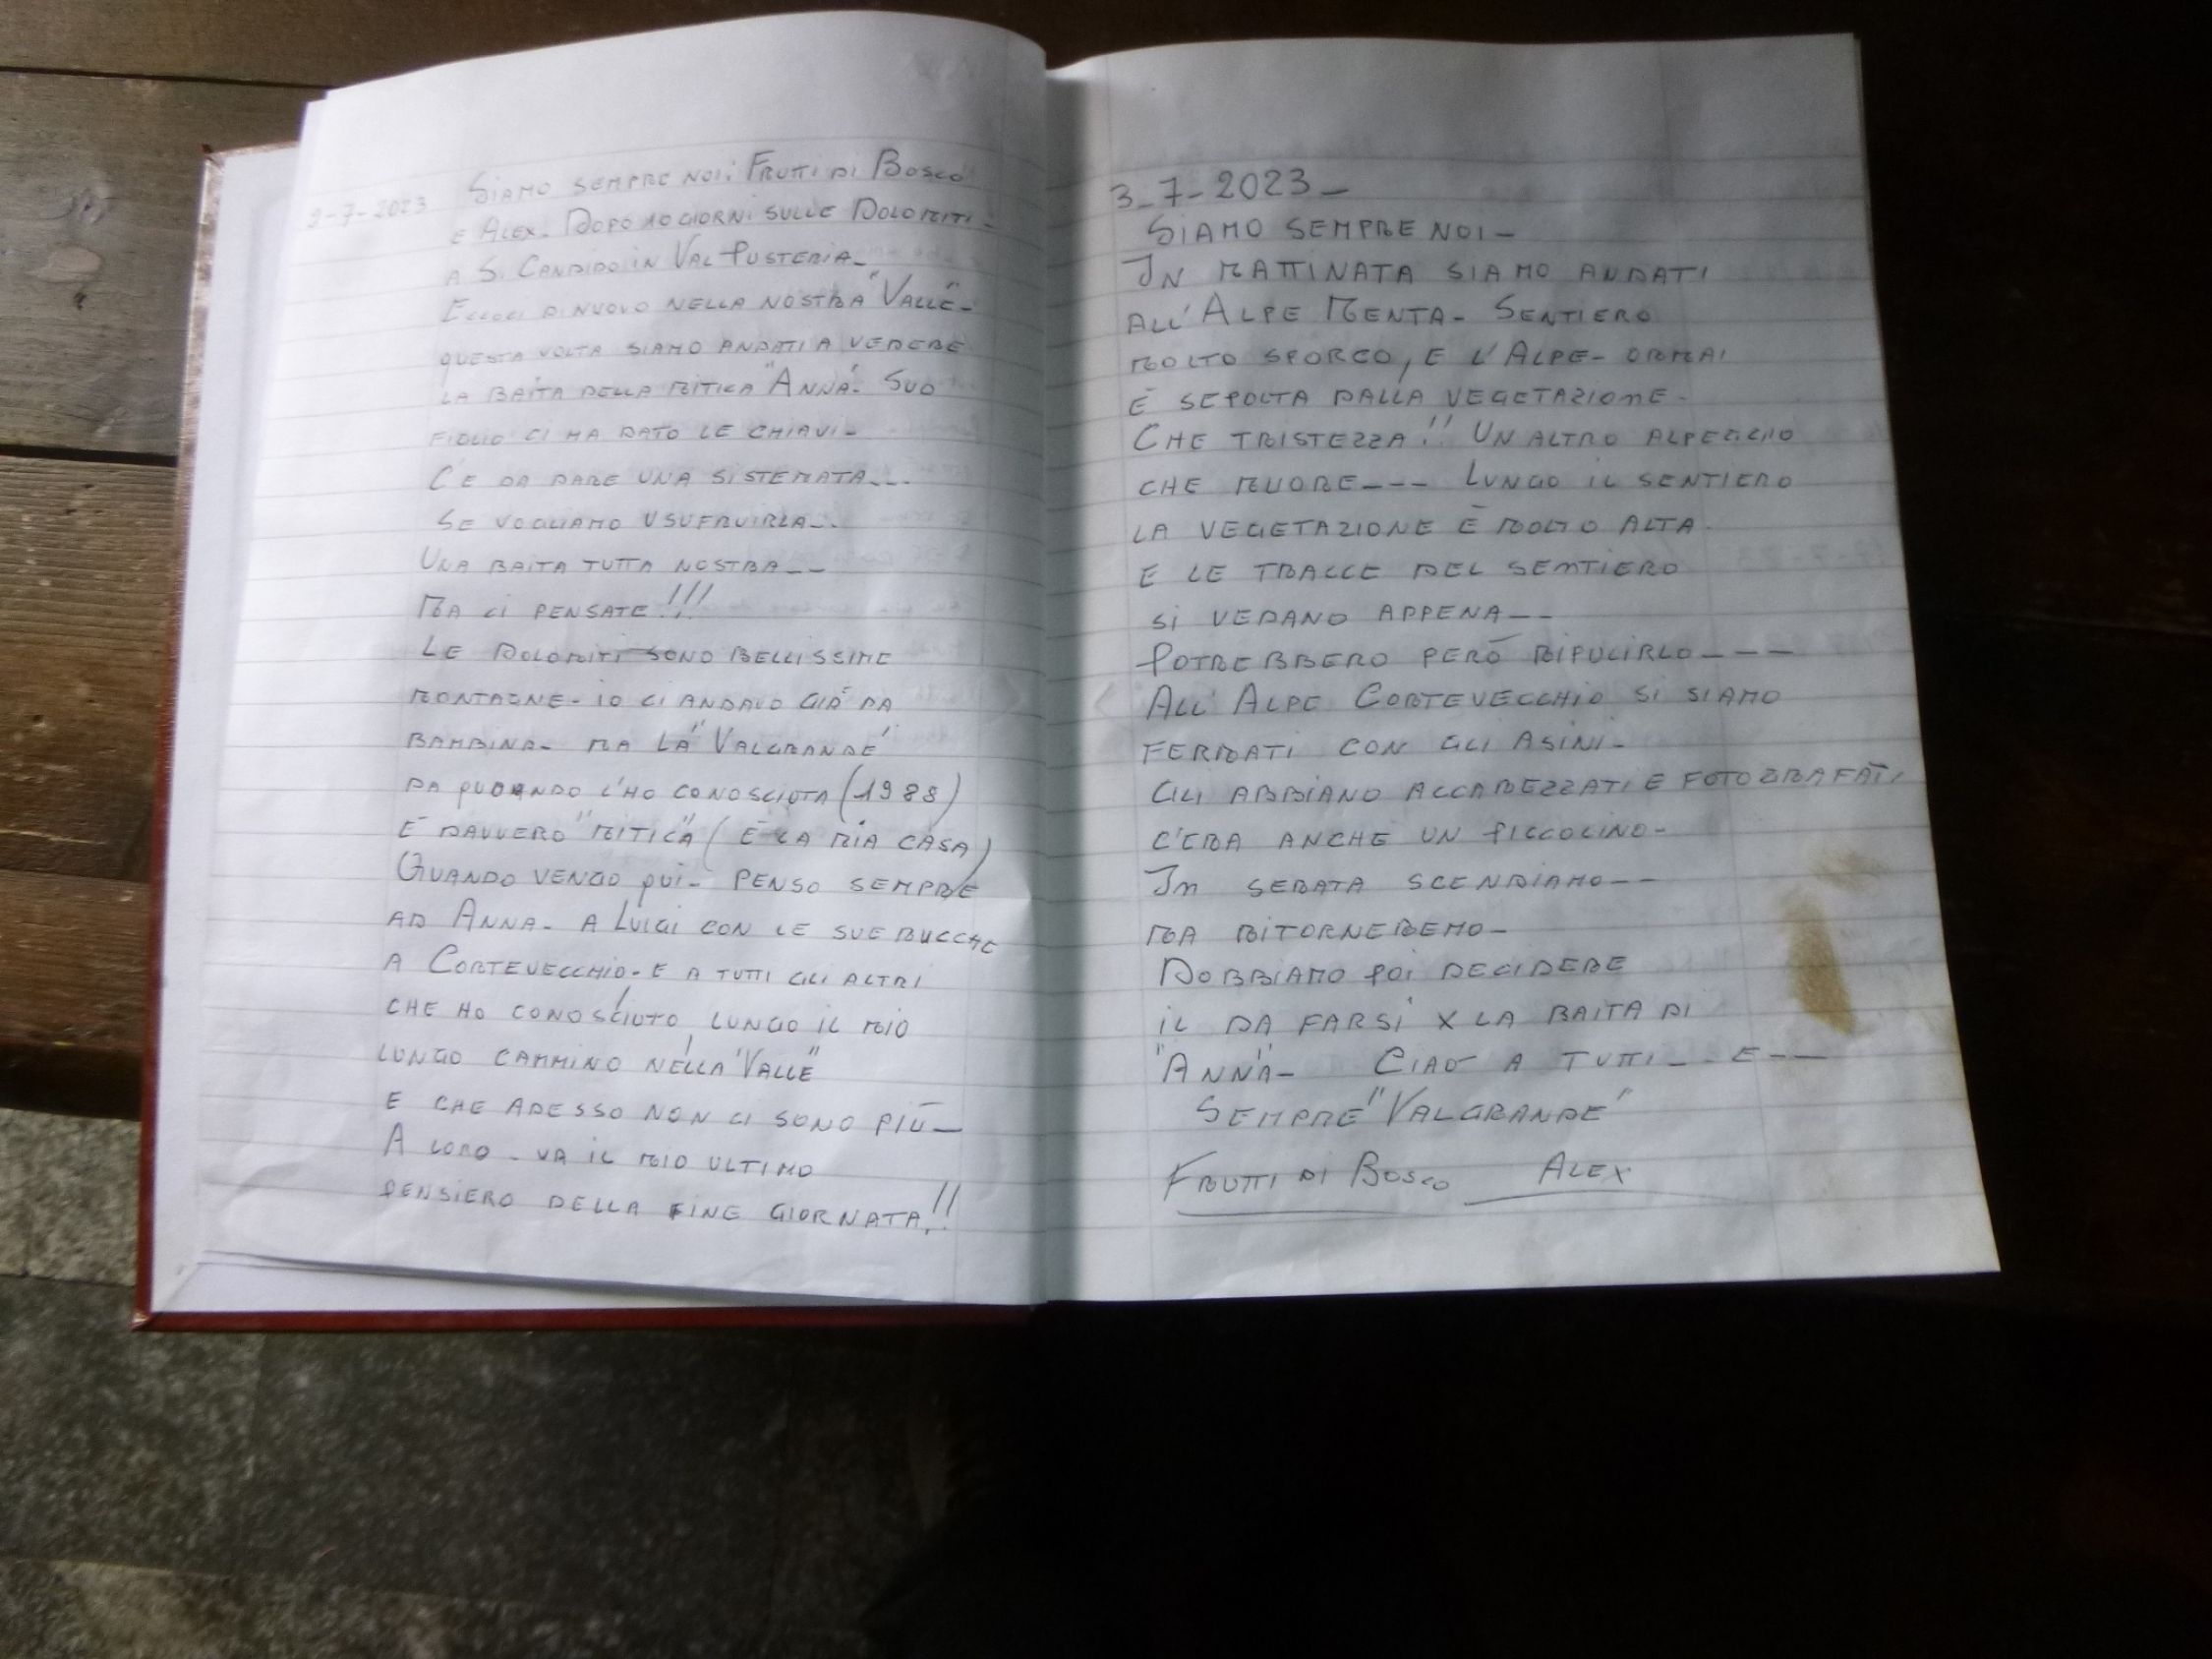 2-7-2023 SIAMO SEMPRE NOI: FRUTTI DI BOSCO
E ALEX. DOPO 10 GIORNI SULLE DOLOMITI -
A S. CANDIDO IN VAL PUSTERIA_
ECCOCI DI NUOVO NELLA NOSTRA "VALLE"-
QUESTA VOLTA SIAMO ANDATI A VEDERE
LA BAITA DELLA MITICA "ANNA". SUO
FIGLIO CI HA DATO LE CHIAVI-
C'È DA DARE UNA SISTEMATA_--
SE VOGLIAMO USUFRUIRLA_-
UNA BAITA TUTTA NOSTRA__
MA CI PENSATE!!!
LE DOLOMITI SONO BELLISSIME
MONTAGNE- IO CI ANDAVO GIÀ DA
BAMBINA- MA LA "VALGRANDE"
DA QUANDO L'HO CONOSCIUTA (1988)
È DAVVERO "MITICA" (È LA MIA CASA)
QUANDO VENGO QUI- PENSO SEMPRE
AD ANNA- A LUIGI CON LE SUE MUCCHE
A CORTEVECCHIO- E A TUTTI GLI ALTRI
CHE HO CONOSCIUTO LUNGO IL MIO
LUNGO CAMMINO NELLA "VALLE"
E CHE ADESSO NON CI SONO PIÙ_
A LORO - VA IL MIO ULTIMO
PENSIERO DELLA FINE GIORNATA!!
3_7-2023_
SIAMO SEMPRE NOI_
IN MATTINATA SIAMO ANDATI
ALL'ALPE MENTA- SENTIERO
MOLTO SPORCO, E L'ALPE- ORMAI
È SEPOLTA DALLA VEGETAZIONE-
CHE TRISTEZZA!! UN ALTRO ALPEGGIO
CHE MUORE--- LUNGO IL SENTIERO
LA VEGETAZIONE È MOLTO ALTA-
E LE TRACCE DEL SENTIERO
SI VEDANO APPENA__
POTREBBERO PERÒ RIPULIRLO---
ALL'ALPE CORTEVECCHIO SI SIAMO
FERMATI CON GLI ASINI-
GLI ABBIANO ACCAREZZATI E FOTOGRAFATI
C'ERA ANCHE UN PICCOLINO-
IN SERATA SCENDIAMO--
MA RITORNEREMO-
DOBBIAMO POI DECIDERE
IL DA FARSI X LA BAITA DI
"ANNA"- CIAO A TUTTI_-- E---
SEMPRE "VALGRANDE"
FRUTTI DI BOSCO ALEX